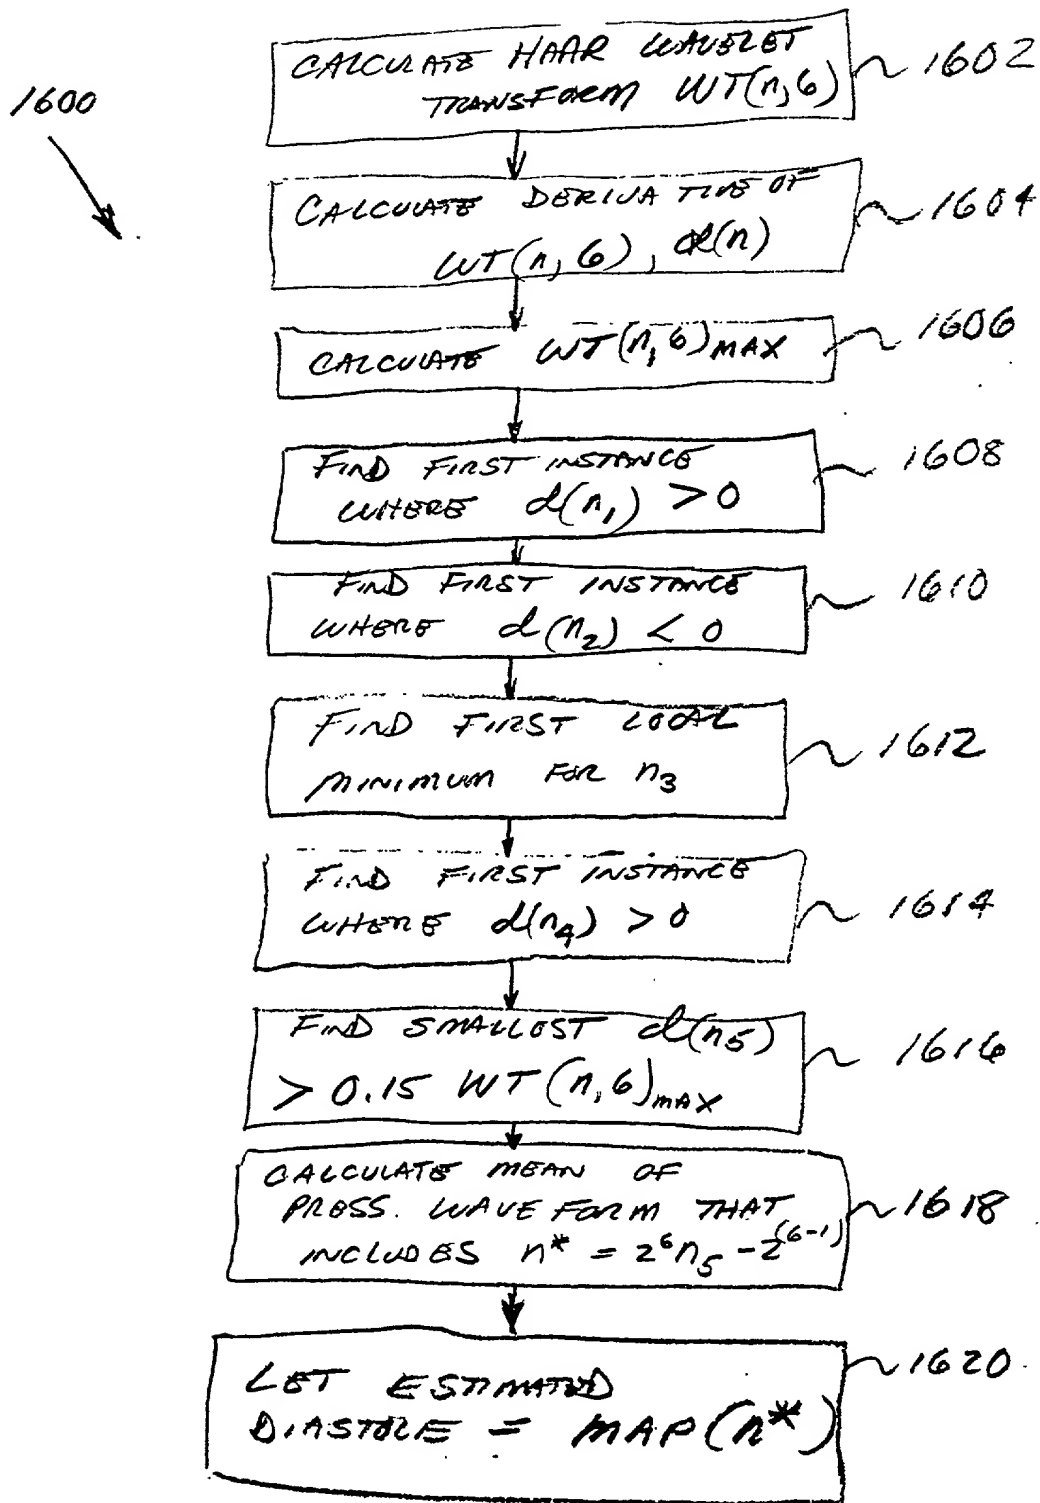 1600
CALCULATE HAAR WAVELET
TRANSFORM WT(n,6)
1602
CALCULATE DERIVATIVE OF
WT(n,6), d(n)
1604
CALCULATE WT(n,6)MAX
1606
FIND FIRST INSTANCE
WHERE d(n₁) > 0
1608
FIND FIRST INSTANCE
WHERE d(n₂) < 0
1610
FIND FIRST LOCAL
MINIMUM FOR n₃
1612
FIND FIRST INSTANCE
WHERE d(n₄) > 0
1614
FIND SMALLEST d(n₅)
> 0.15 WT(n,6)MAX
1616
CALCULATE MEAN OF
PRESS. WAVE FORM THAT
INCLUDES n* = 2⁶n₅ - 2⁽⁶⁻¹⁾
1618
LET ESTIMATED
DIASTOLE = MAP(n*)
1620